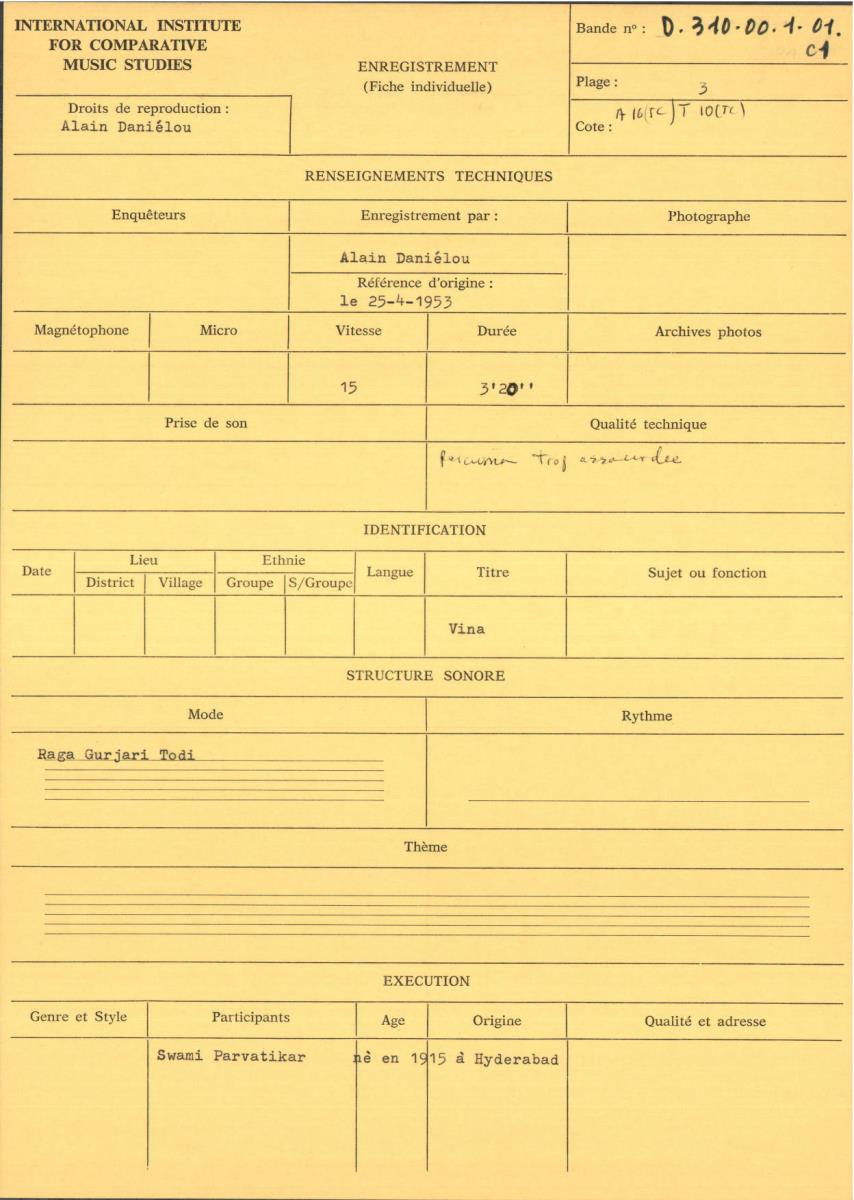 INTERNATIONAL INSTITUTE
FOR COMPARATIVE
MUSIC STUDIES
Droits de reproduction :
Alain Daniélou
ENREGISTREMENT
(Fiche individuelle)
Bande nº : D.310.00.1.01.
C1
Plage : 3
Cote : A 16(TC) T 10(TC)
RENSEIGNEMENTS TECHNIQUES
Enquêteurs
Enregistrement par :
Photographe
Alain Daniélou
Référence d'origine :
le 25-4-1953
Magnétophone
Micro
Vitesse
Durée
Archives photos
15
3'20''
Prise de son
Qualité technique
trop assourdee
IDENTIFICATION
Date
Lieu
Ethnie
Langue
Titre
Sujet ou fonction
District
Village
Groupe
S/Groupe
Vina
STRUCTURE SONORE
Mode
Rythme
Raga Gurjari Todi
Thème
EXECUTION
Genre et Style
Participants
Age
Origine
Qualité et adresse
Swami Parvatikar
nè en 1915 à Hyderabad